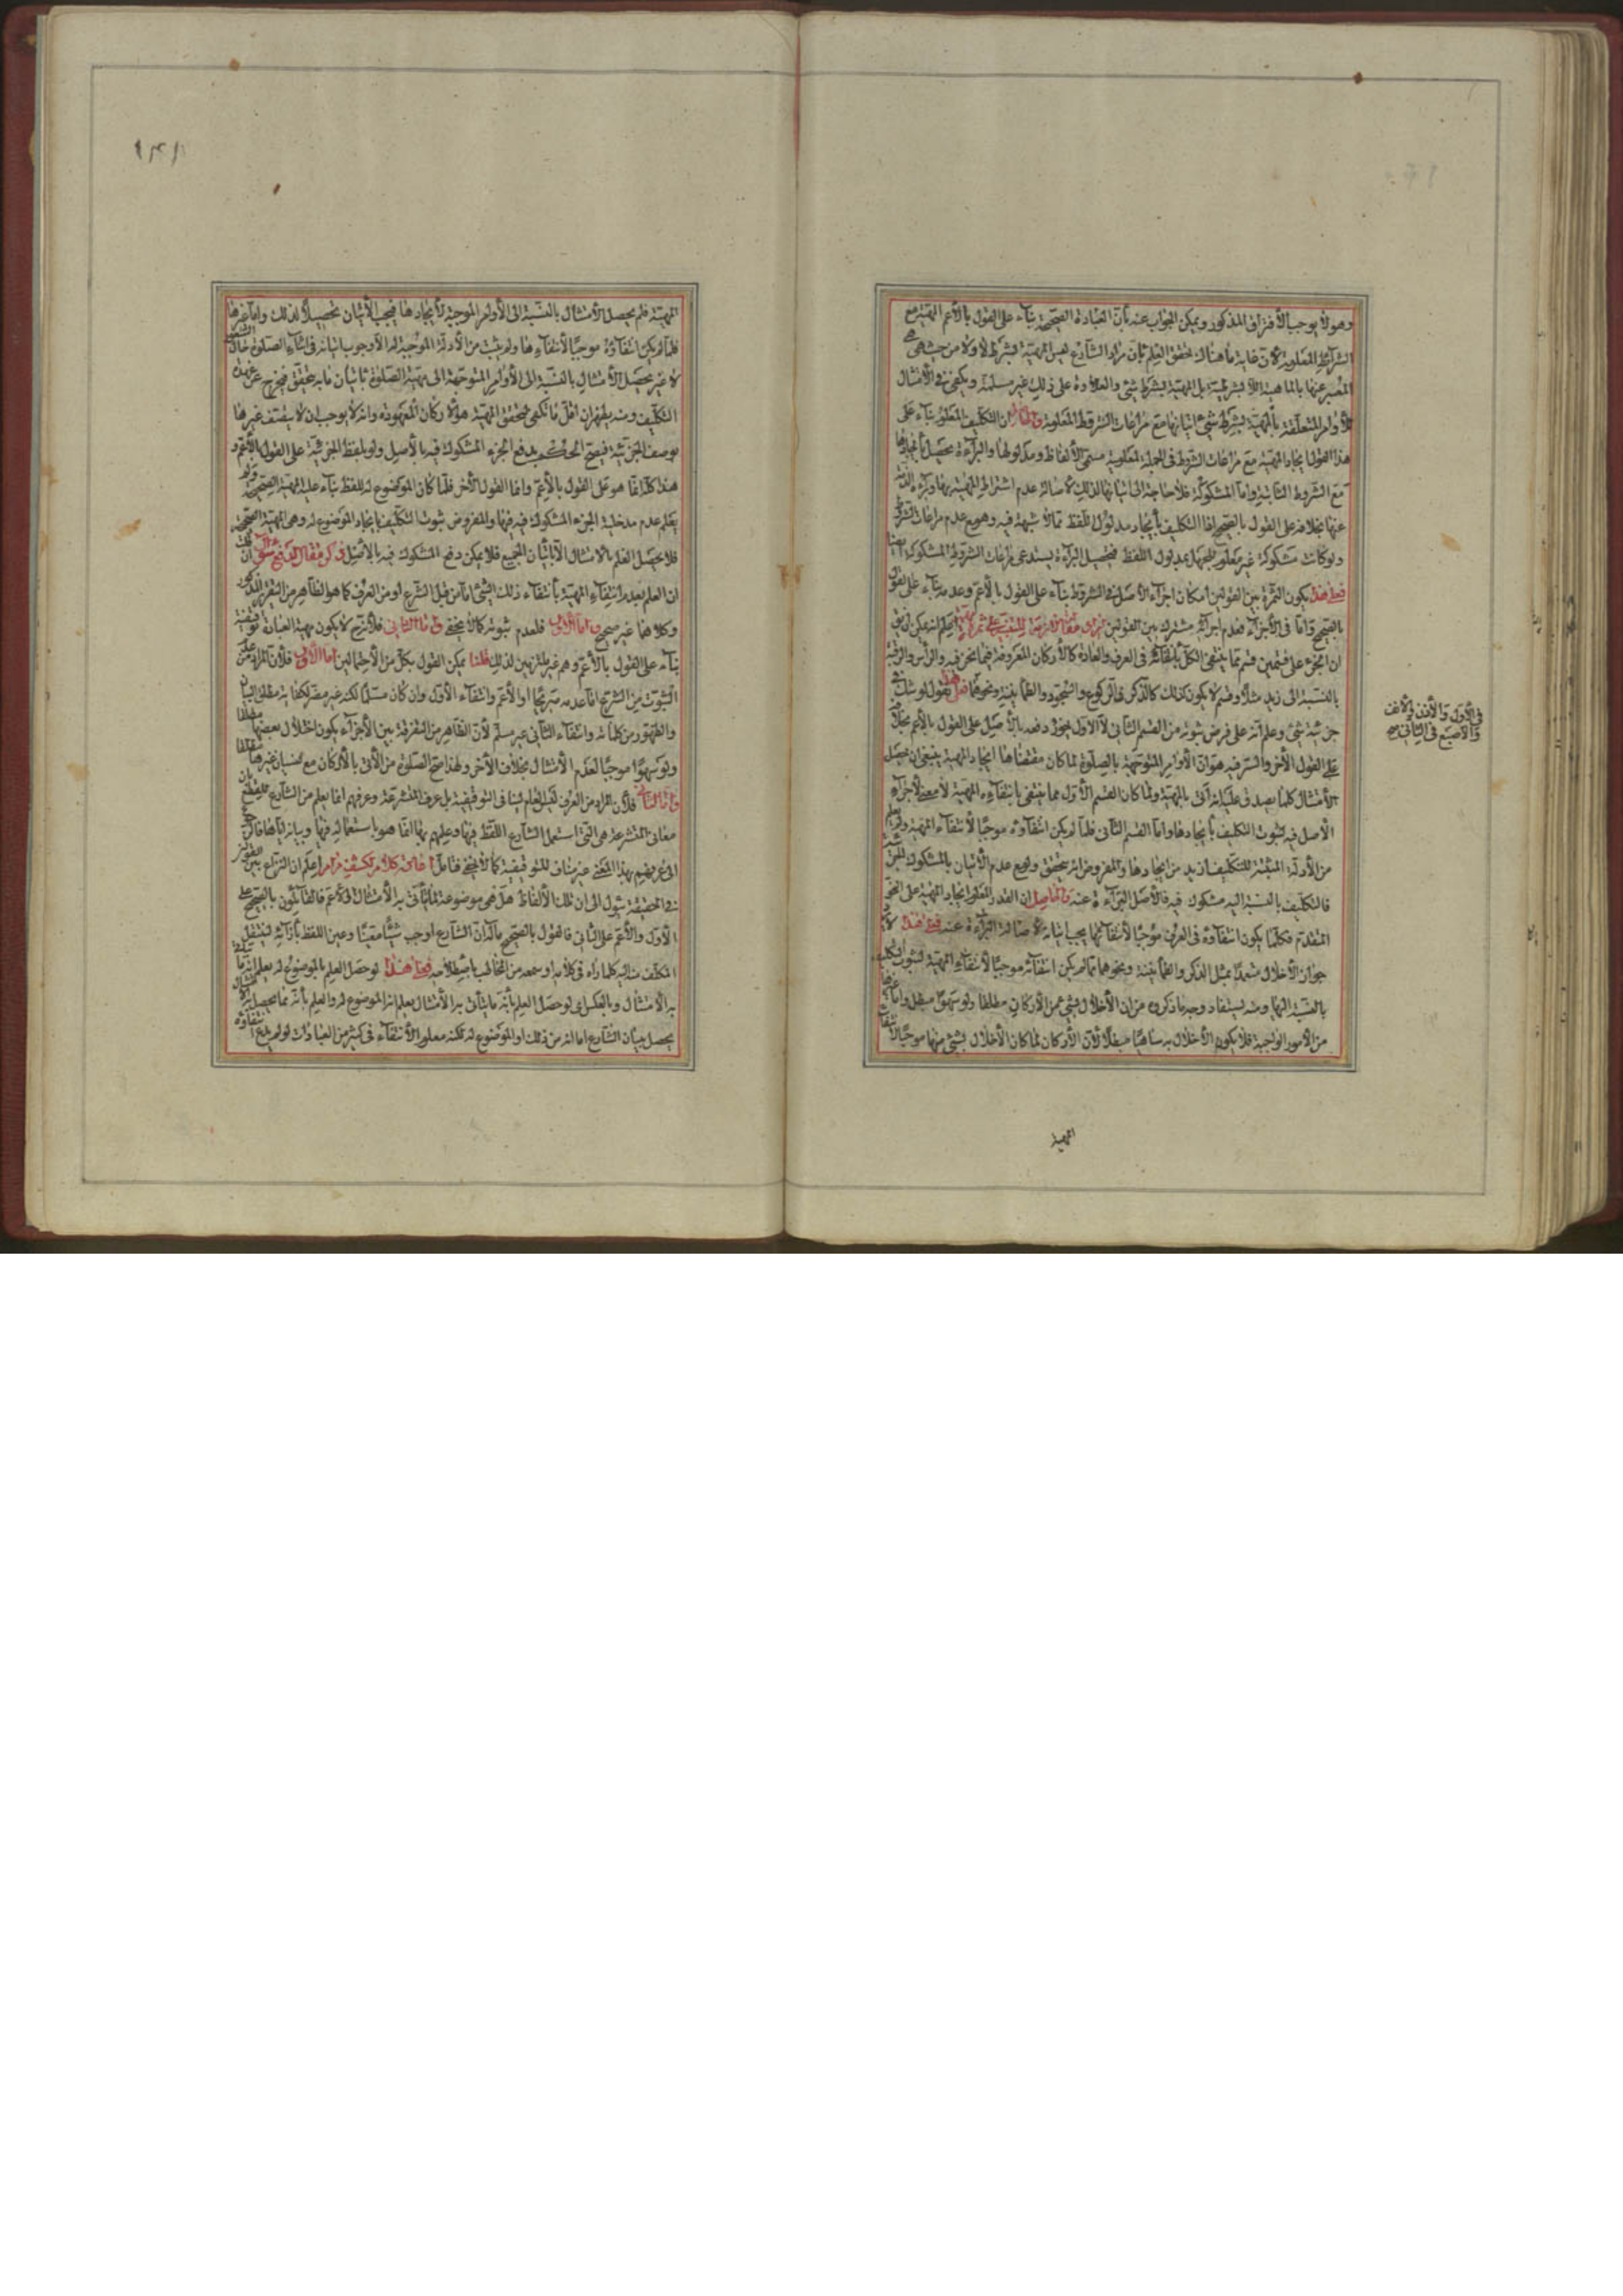 وهو لا يوجب الافتراق المذكور ويمكن الجواب عنه بأنّ العبادة الصحيحة بناء على القول بالأعم المهيّة مع
الشرائط المعلومة لأنّ غاية ما هناك تحقق العلم بأنّ مراد الشارع ليس المهيّة لا بشرط ولا من حيث هي
المعبّر عنها بالماهية اللا بشرطية بل المهيّة بشرط شئ والعلاوة على ذلك غير مسلمة ويكفي في الامتثال
للأوامر المتعلّقة بالمهيّة بشرط شئ اتيانها مع مراعات الشروط المعلومة والحاصل ان التكليف المعلوم بناء على
هذا القول ايجاد المهيّة مع مراعات الشروط في الجملة لمعلومية مسمّى الألفاظ ومدلولها والبراءة يحصل بايجادها
مع الشروط الثابتة وامّا المشكوكة فلا حاجة الى اتيانها لذلك لأصالة عدم اشتراط المهيّة بها وبراءة الذمة
عنها بخلافه على القول بالصحيح اذا التكليف بأيجاد مدلول اللفظ ممّا لا شبهة فيه وهو مع عدم مراعات الشروط
ولو كانت مشكوكة غير معلوم للجهل بمدلول اللفظ فتحصيل البراءة يستدعى مراعات الشروط المشكوكة ايضا
فعلى هذا يكون الثمرة بين القولين امكان اجراء الأصل في الشروط بناء على القول بالأعم وعدمه بناء على القول
بالصحيح وامّا في الأجزاء فعدم اجرائه مشترك بين القولين اعلم انه يمكن ان يق
ان الجزء على قسمين قسم ممّا ينتفى الكلّ بانتفائه في العرف والعادة كالأركان المعروضة فيما نحن فيه والرأس والرقبة
بالنسبة الى زيد مثلا وقسم لا يكون كذلك كالذكر في الركوع والسجود والطمأنينة ونحوهما فعلى هذا نقول لو شك في
جزئية شئ وعلم انّه على فرض ثبوته من القسم الثاني لا الأول يجوز دفعه بالأصل على القول بالأعم بخلافه
على القول الأخر والسر فيه هو انّ الأوامر المتوجهة بالصلوة لما كان مقتضاها ايجاد المهية ينبغى ان يحصل
الأمتثال كلما يصدق عليه انه اتى بالمهيّة ولما كان القسم الأول مما ينتفى بانتفاءه المهيّة لا معنى لأجراء
الأصل فيه لثبوت التكليف بأيجادها وامّا القسم الثاني فلمّا لم يكن انتفاؤه موجبًا لأنتفاء المهيّة ولم يعلم
من الأدلّة المثبتة للتكليف ازيد من ايجادها والمفروض انه يتحقق ولو مع عدم الأتيان بالمشكوك
فالتكليف بالنسبة اليه مشكوك فيه فالأصل البراءة عنه والحاصل ان القدر المعلوم ايجاد المهيّة على النحو
المتقدم فكلّما يكون انتفاؤه في العرف موجبًا لأنتفائها يجب اتيانه لأصالة البراءة عنه فعلى هذا لا
جواز الأخلال متعمدًا بمثل الذكر والطمأنينة ونحوهما مما لم يكن انتفائه موجبًا لأنتفاء المهيّة لثبوت التكليف
بالنسبة اليها ومنه يستفاد وجه ما ذكروه من ان الأخلال بشئ من الأركان مطلقا ولو سهوًا مبطل وامّا غيرها
من الأمور الواجبة فلا يكون الأخلال به ساهيًا مبطلا لأن الأركان لما كان الأخلال بشئ منها موجبًا لأنتفاء
في الأول والأذن والأنف
والأصبع في الثاني صح
المهية
١٤١
المهيّة فلم يحصل الأمتثال بالنسبة الى الأوامر الموجبة لأيجادها فيجب الأتيان تحصيلًا لذلك وامّا غيرها
فلمّا لم يكن انتفاؤه موجبًا لأنتفاءها ولم يثبت من الأدلة الموجبة له الّا وجوب اتيانه في اثناء الصلوة حال
لا غير يحصل الأمتثال بالنسبة الى الأوامر المتوجهة الى مهيّة الصلوة باتيان ما به يتحقق فيخرج عن عهدة
التكليف ومنه يظهر ان اقلّ ما يكفى لتحقق المهيّة هو الأركان المعهودة وانه لا يوجب ان لا يتصف غيرها
بوصف الجزئية فيصح الحكم بدفع الجزء المشكوك فيه بالأصل ولو بلفظ الجزئية على القول بالأعم و
هذا كلّه انّما هو على القول بالأعمّ وامّا القول الأخر فلمّا كان الموضوع له للفظ بناء عليه المهيّة الصحيحة ولم
يعلم عدم مدخلية الجزء المشكوك فيه فيها والمفروض ثبوت التكليف بايجاد الموضوع له وهي المهيّة الصحيحة
فلا يحصل العلم بالامتثال الّا باتيان الجميع فلا يمكن دفع المشكوك فيه بالأصل ذكر مقال لدفع سؤال ان قلت
ان العلم بعدم انتفاء المهيّة بأنتفاء ذلك الشئ امّا من قبل الشرع او من العرف كما هو الظاهر من التقرير المذكور
وكلاهما غير صحيح امّا الأول فلعدم ثبوته كما لا يخفى وامّا الثاني فلأنه ح لا يكون مهية العبادة توقيفية
بناء على القول بالأعمّ وهم غير ملتزمين لذلك قلنا يمكن القول بكلّ من الأحتمالين امّا الأول فلأن المراد من
الثبوت من الشرع امّا عدمه صريحًا او الأعمّ وانتفاء الأول وان كان مسلّمًا لكنه غير مضر لكفاية مطلق البيان
والظهور من كلماته وانتفاء الثاني غير مسلّم لأن الظاهر من التفرقة بين الأجزاء بكون اختلال بعضها مطلقا
ولو سهوًا موجبًا لعدم الأمتثال بخلاف الأخر ولهذا صح الصلوة من الأتى بالأركان مع نسيان غيرها
وامّا الثاني فلأن المراد من العرف ليس العام لينافى التوقيفية بل عرف المتشرعة وعرفهم انّما يعلم من الشارع
معانى المتشرعة هي التي استعمل الشارع اللفظ فيها وعلمهم بها انّما هو باستعماله فيها وبيانه لها
الى عرفهم بهذا المعنى غير مناف للتوقيفية كما لا يخفى فتأمل اعلم ان النزاع بين القولين
في الحقيقة يئول الى ان تلك الألفاظ هل هي موضوعة لما يأتى به الأمتثال او لأعم فالقائلون بالصحيح على
الأول والأعم على الثاني فالقول بالصحيح مآله انّ الشارع اوجب شيئًا معيّنًا وعين اللفظ بأزائه لينتقل
المكلّف منه اليه كلما راه في كلامه او سمعه من المخاطب باصطلاحه فعلى هذا لو حصل العلم بالموضوع له يعلم انه ما
به الأمتثال وبالعكس اى لو حصل العلم بأنّه ما يتأتى به الأمتثال يعلم انه الموضوع له والعلم بأنّه ممّا يحصل به
يحصل ببيان الشارع اما انه من ذلك او الموضوع له لكنه معلوم الأنتفاء في كثير من العبادات لو لم يدع انتفاؤه